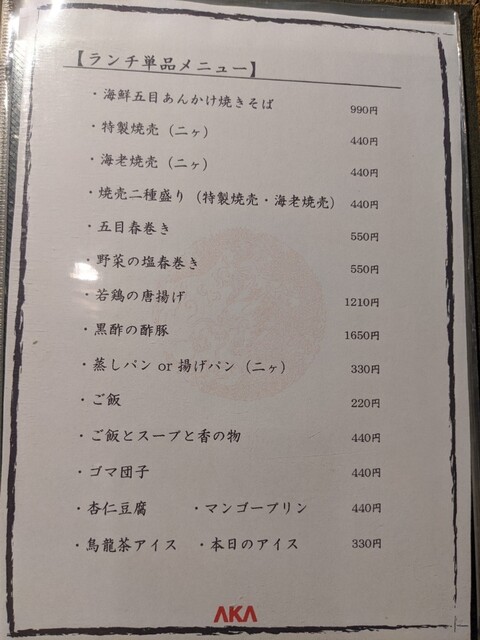 【ランチ単品メニュー】
・海鮮五目あんかけ焼きそば 990円
・特製焼売（二ヶ） 440円
・海老焼売（二ヶ） 440円
・焼売二種盛り（特製焼売・海老焼売） 440円
・五目春巻き 550円
・野菜の塩春巻き 550円
・若鶏の唐揚げ 1210円
・黒酢の酢豚 1650円
・蒸しパン or 揚げパン（二ヶ） 330円
・ご飯 220円
・ご飯とスープと香の物 440円
・ゴマ団子 440円
・杏仁豆腐 ・マンゴープリン 440円
・烏龍茶アイス ・本日のアイス 330円
AKA